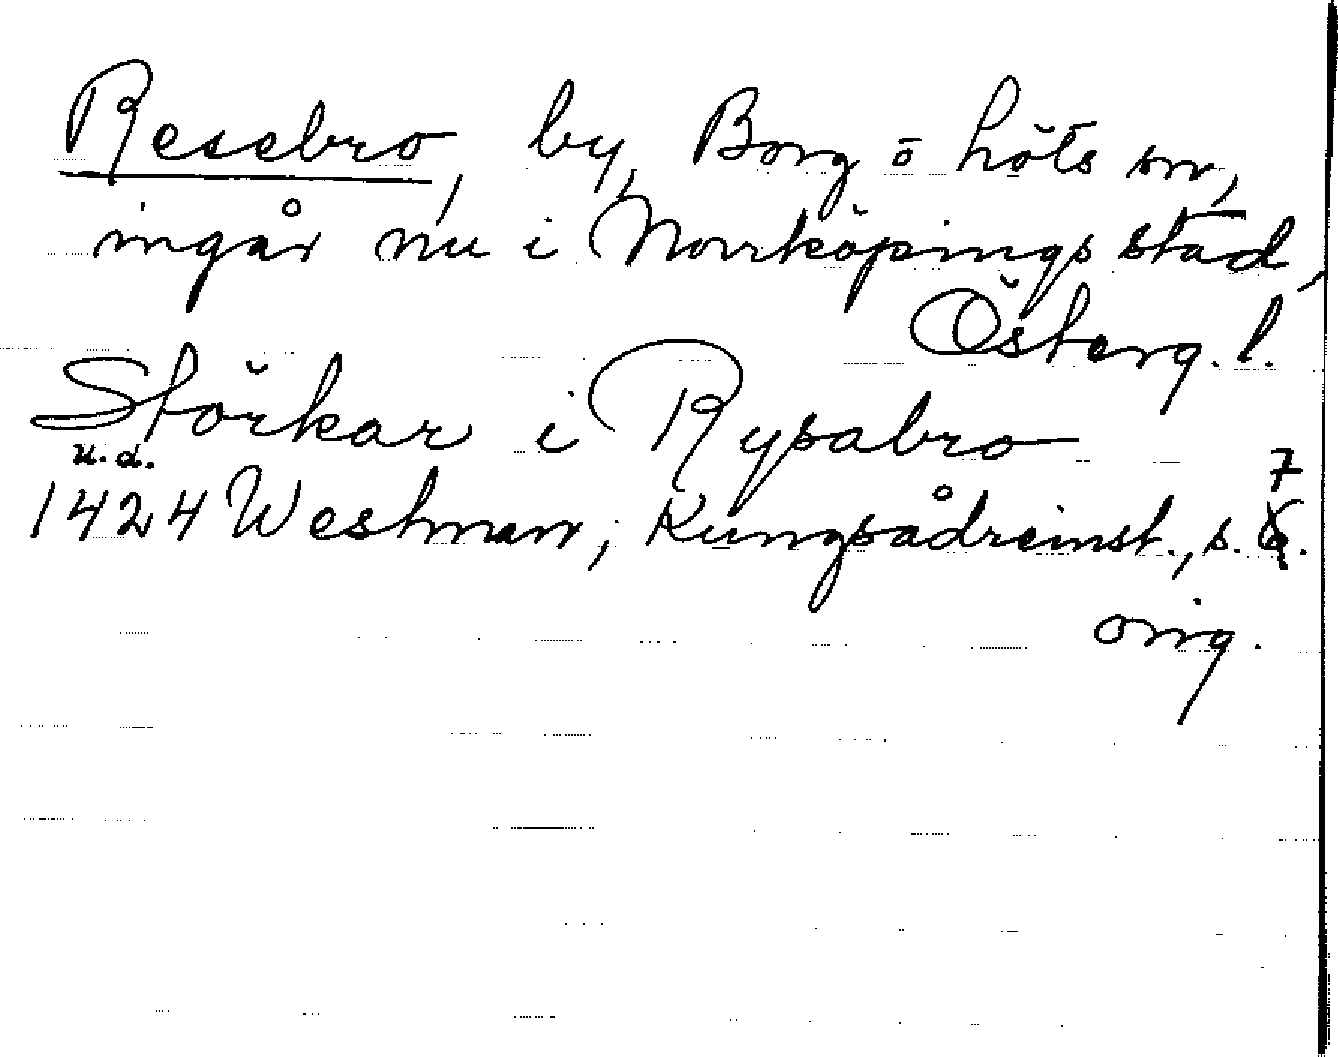 Resebro, by, Borg o Löts sn,
ingår nu i Norrköpings stad,
Österg. l.
Störkar i Rysabro
u.d.
1424 Westman, Kungsådreinst., s. 7.
orig.